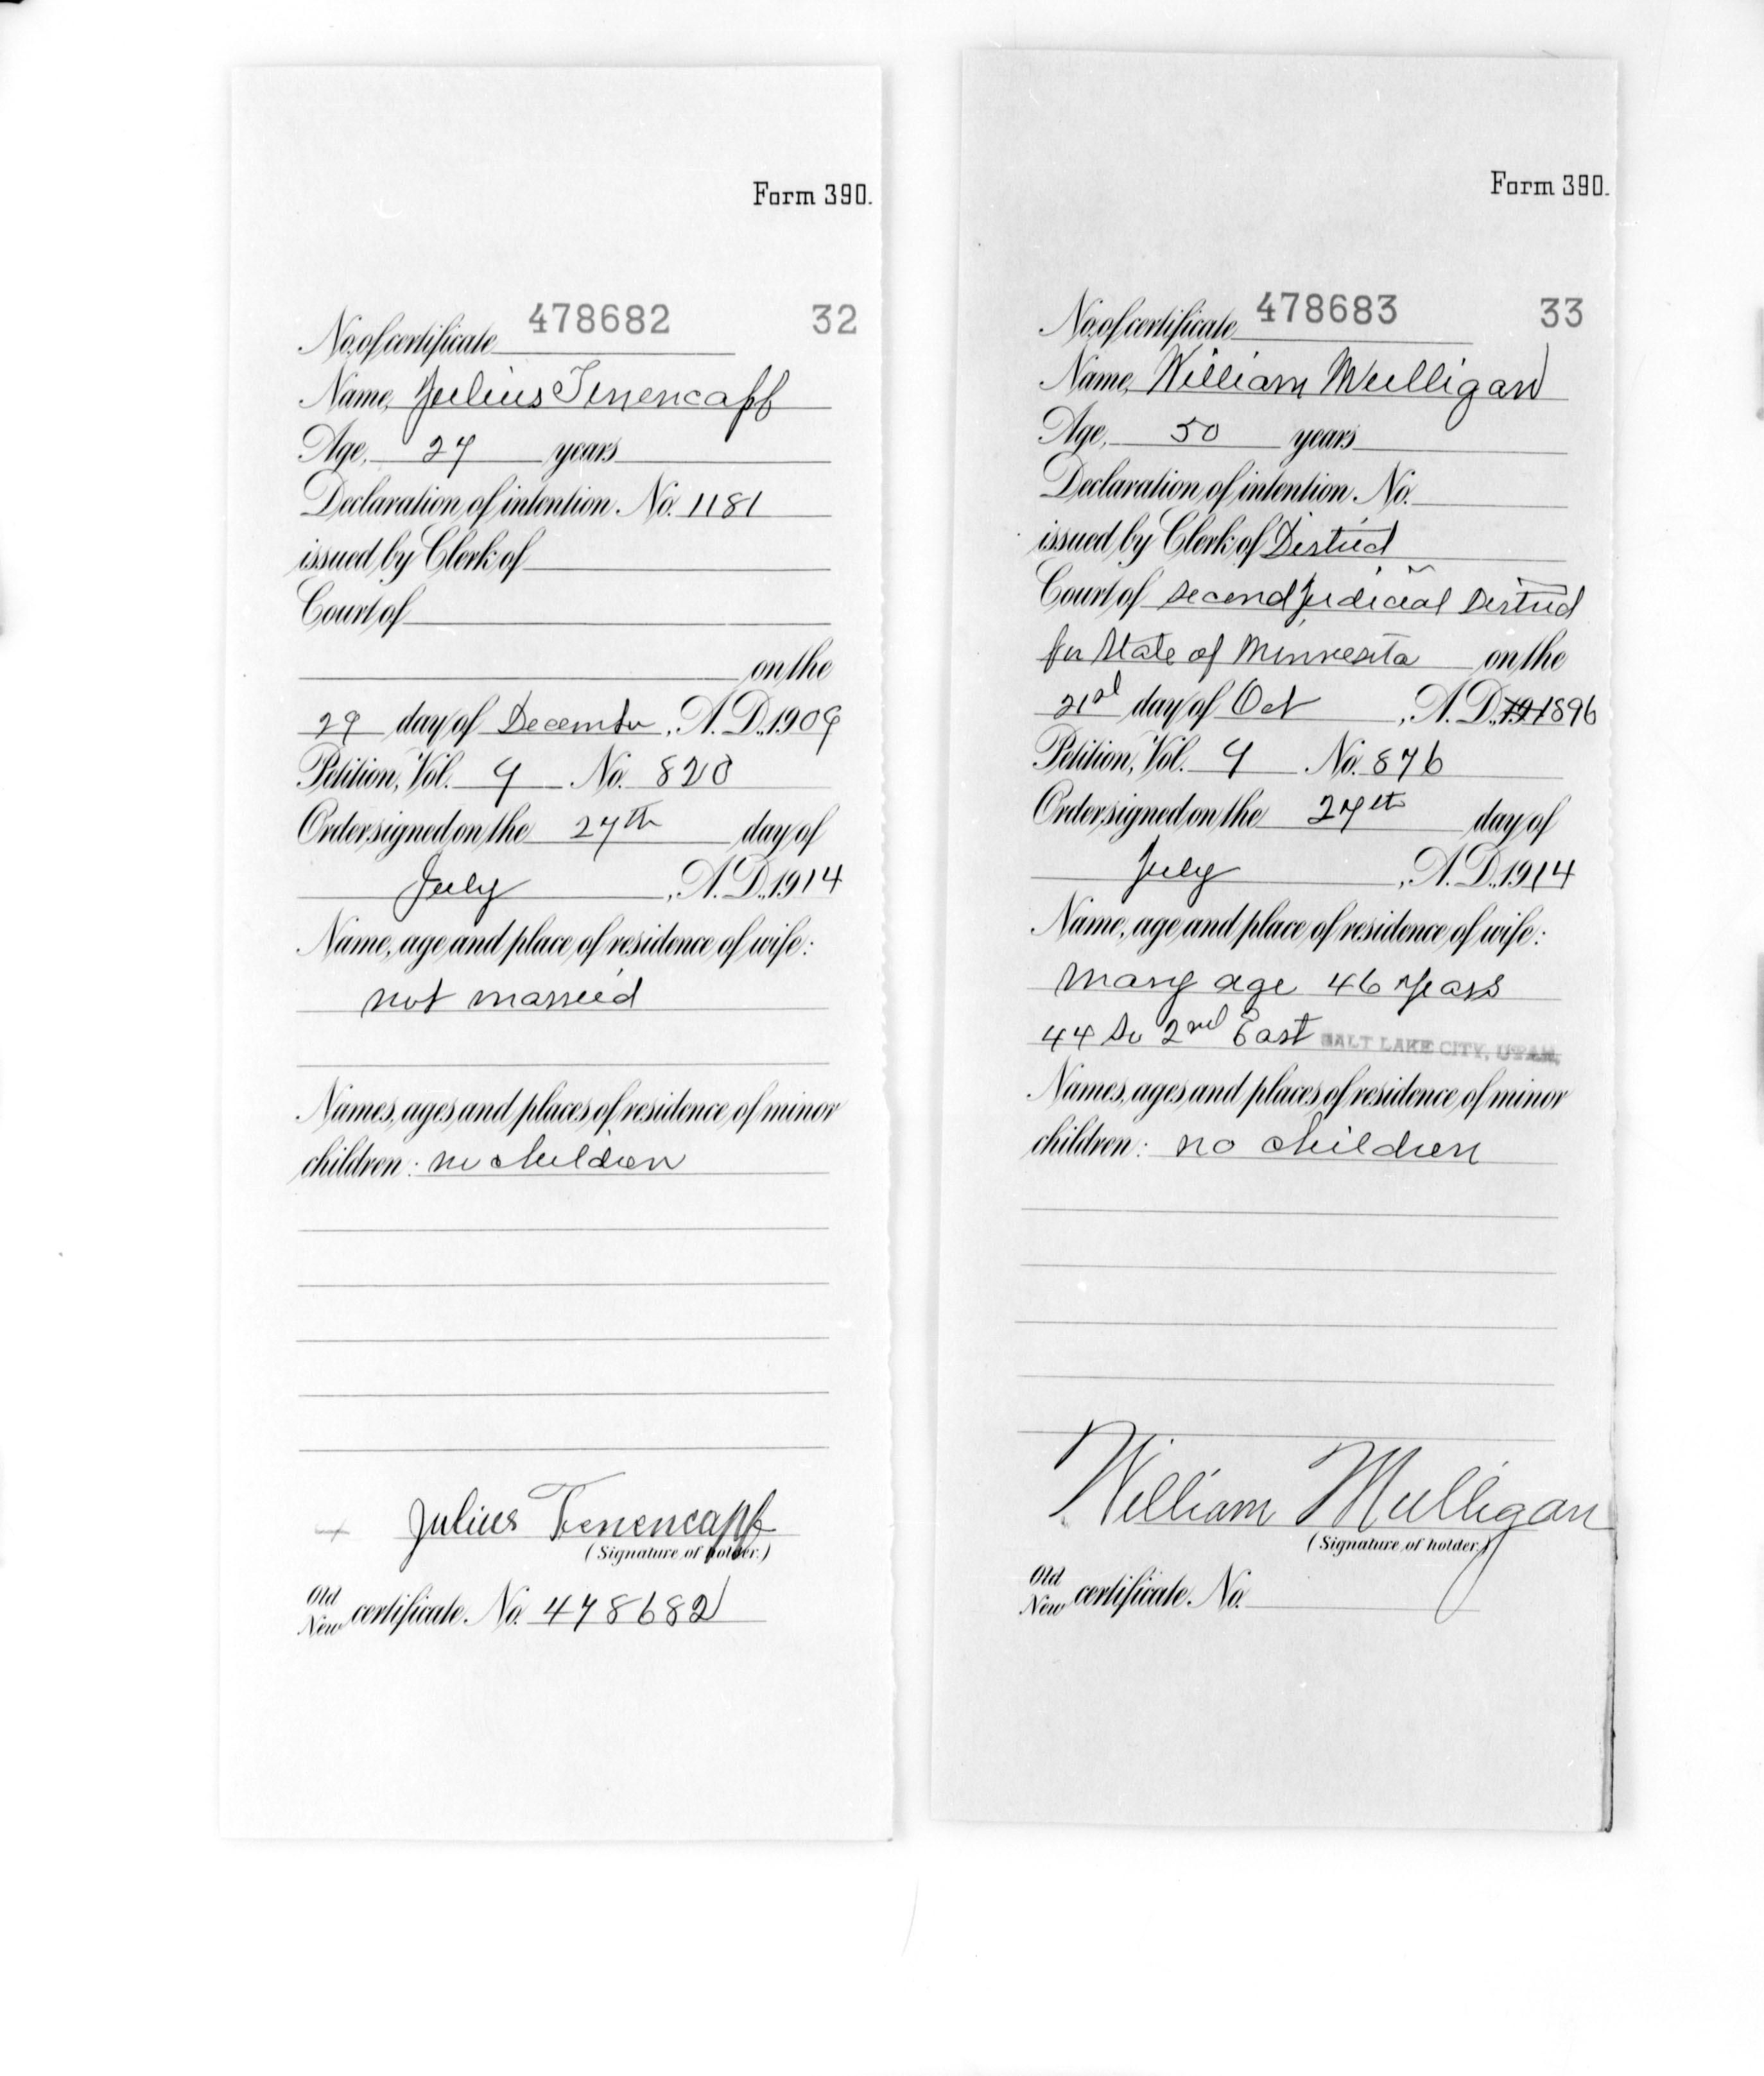 Form 390.
478682 32
No. of certificate
Name, Julius Tenencapf
Age, 27 years
Declaration of intention. No. 1181
issued by Clerk of
Court of
on the
29 day of December, A. D., 1909
Petition, Vol. 9 No. 820
Order signed on the 27th day of
July, A. D., 1914
Name, age and place of residence of wife:
not married
Names, ages and places of residence of minor
children: no children
Julius Tenencapf
(Signature of holder.)
Old
New certificate. No. 478682
Form 390.
478683 33
No. of certificate
Name, William Mulligan
Age, 50 years
Declaration of intention. No.
issued by Clerk of District
Court of Second Judicial District
for State of Minnesota on the
21st day of Oct, A. D., 191 1896
Petition, Vol. 9 No. 876
Order signed on the 27th day of
July, A. D., 1914
Name, age and place of residence of wife:
Mary age 46 years
44 So 2nd East SALT LAKE CITY, UTAH,
Names, ages and places of residence of minor
children: no children
William Mulligan
(Signature of holder.)
Old
New certificate. No.